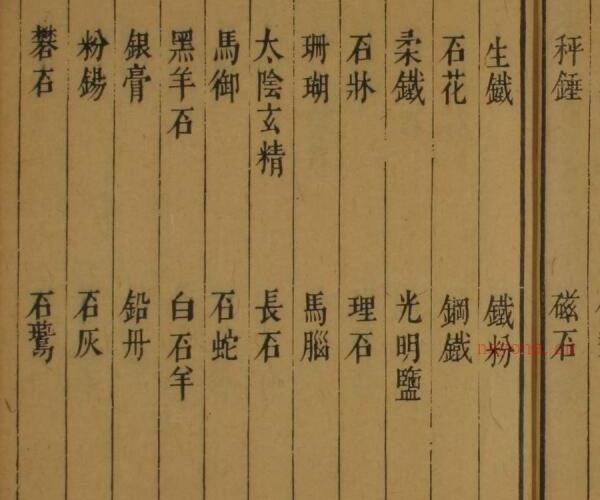 秤錘 磁石
生鐵 鐵粉
石花 鋼鐵
柔鐵 光明鹽
石牀 理石
珊瑚 馬腦
太陰玄精 長石
馬御 石蛇
黑羊石 白石羊
銀膏 鉛丹
粉錫 石灰
礬石 石鷰